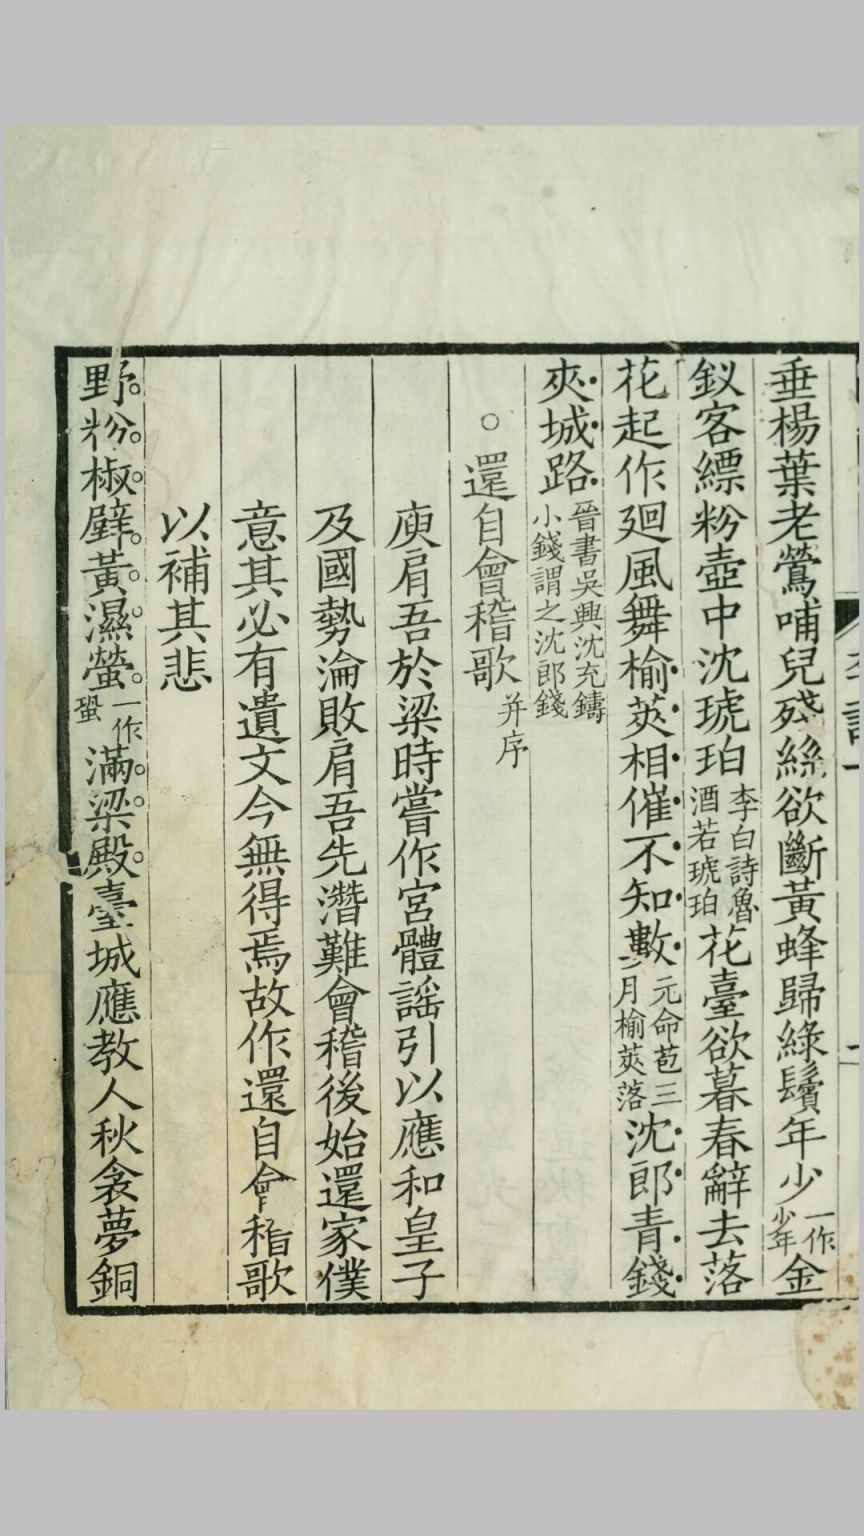 垂楊葉老鶯哺兒殘絲欲斷黃蜂歸綠鬢年少一作少年金
釵客縹粉壺中沈琥珀李白詩魯酒若琥珀花臺欲暮春辭去落
花起作廻風舞榆莢相催不知數元命苞三月榆莢落沈郎青錢
夾城路晉書吳興沈充鑄小錢謂之沈郎錢
○還自會稽歌并序
庾肩吾於梁時嘗作宮體謡引以應和皇子
及國勢淪敗肩吾先潛難會稽後始還家僕
意其必有遺文今無得焉故作還自會稽歌
以補其悲
野粉椒壁黃濕螢一作蛩滿梁殿臺城應教人秋衾夢銅